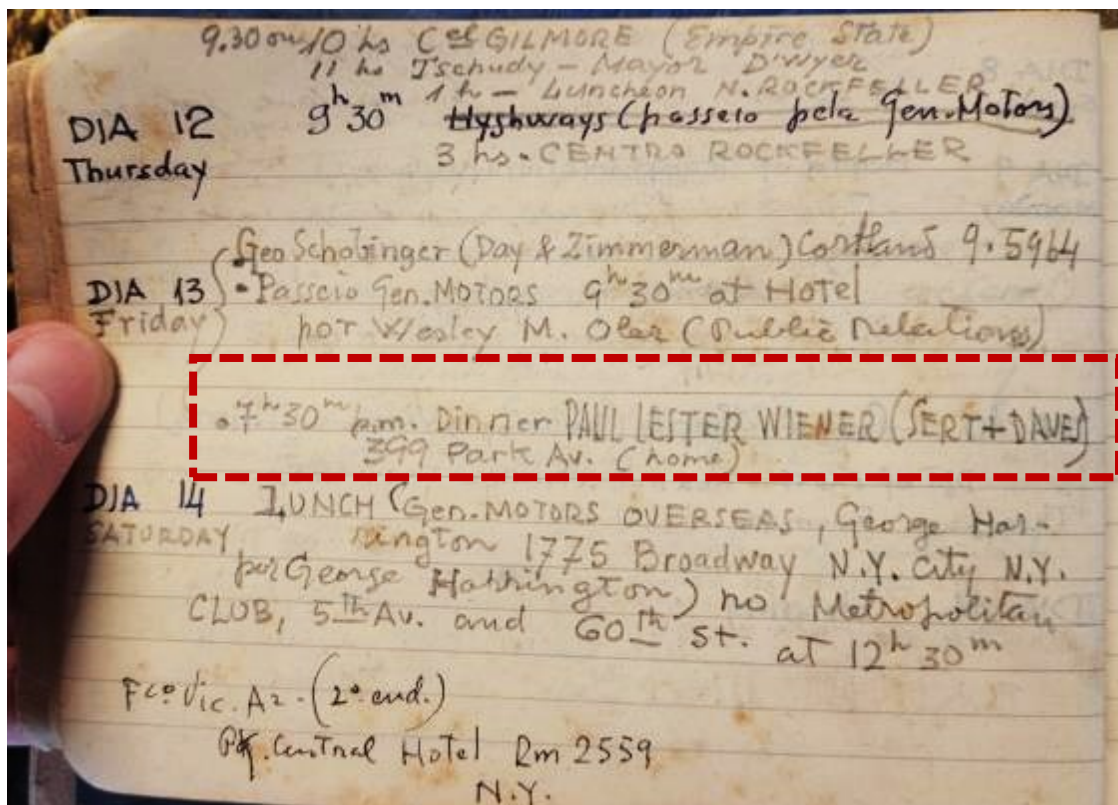 9.30 ou 10 hs Cel GILMORE (Empire State)
11 hs Tschudy - Mayor D'wyer
1 h - Luncheon N. ROCKFELLER
DIA 12 9h 30m Hyshways (passeio pela Gen. Motors)
Thursday 3 hs. CENTRO ROCKFELLER
Geo Schobinger (Day & Zimmerman) Cortland 9.5964
DIA 13 • Passeio Gen. MOTORS 9h 30m at Hotel
Friday por Wesley M. Oler (Public Relations)
• 7h 30m p.m. Dinner PAUL LESTER WIENER (SERT + DAVES)
399 Park Av. (home)
DIA 14 LUNCH (Gen. MOTORS OVERSEAS, George Har-
SATURDAY rington 1775 Broadway N.Y. City N.Y.
por George Harrington) no Metropolitan
CLUB, 5th Av. and 60th St. at 12h 30m
Fco Vic. Az. (2º end.)
Pk. Central Hotel Rm 2559
N.Y.